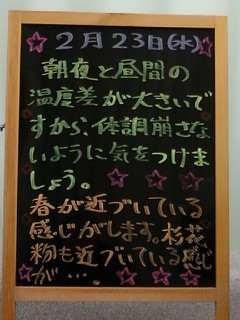 2月23日(水)
朝夜と昼間の
温度差が大きいで
すから、体調崩さな
いように気をつけま
しょう。
春が近づいている
感じがします。杉花
粉も近づいている感じ
が…